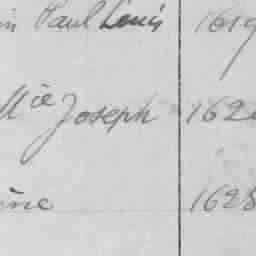 in Paul Louis 1619
Mie Joseph 162
ine 1628